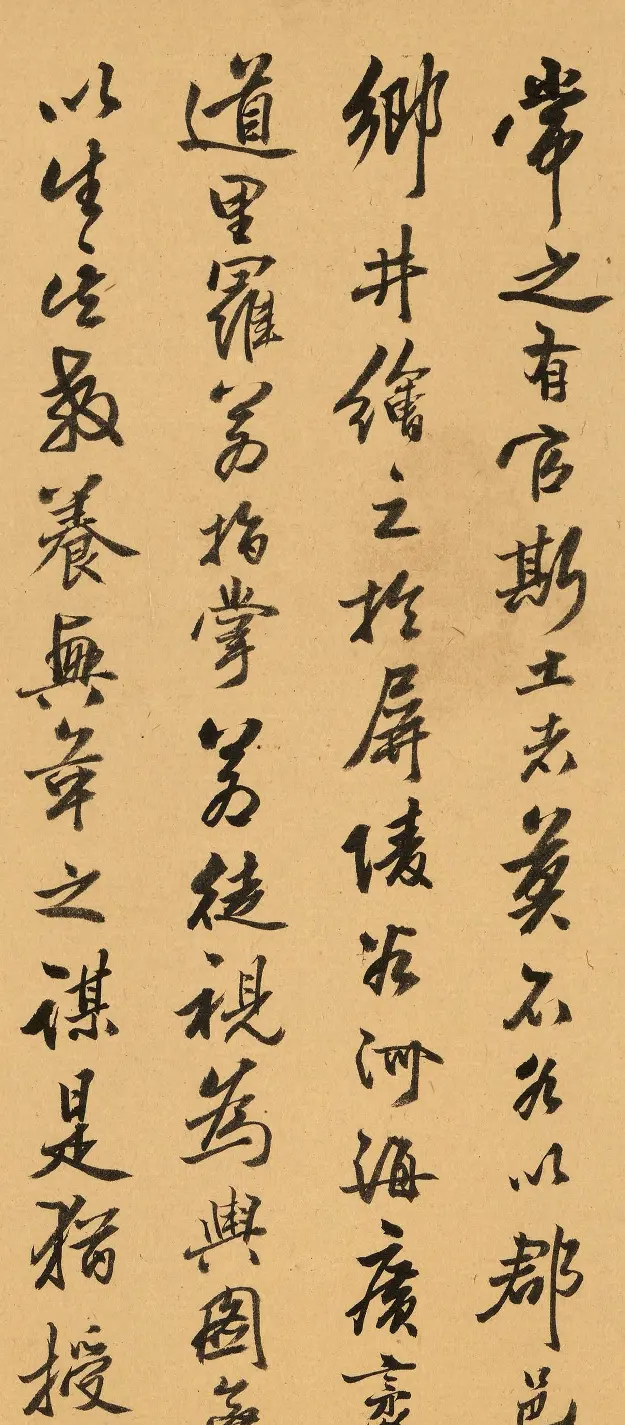 常之有官斯土者莫不各以郡邑
鄉井繪之於屏陵谷洲海廣袤
道里羅若指掌若徒視為輿圖
以生教養興革之謀是猶授